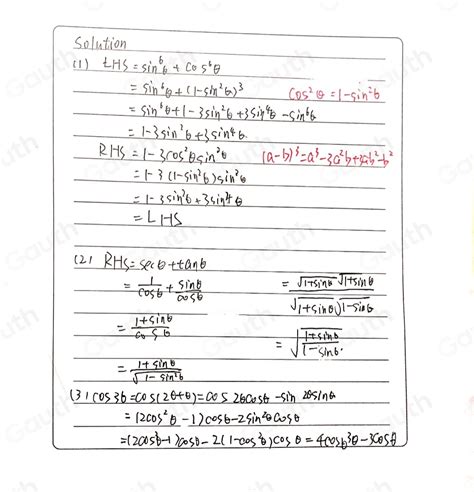 Solution
(1) LHS = sin⁶θ + cos⁶θ
= sin⁶θ + (1-sin²θ)³
cos²θ = 1-sin²θ
= sin⁶θ + 1 - 3sin²θ + 3sin⁴θ - sin⁶θ
= 1-3sin²θ+3sin⁴θ
RHS = 1-3cos²θsin²θ
(a-b)³=a³-3a²b+3ab²-b²
= 1-3(1-sin²θ)sin²θ
= 1-3sin²θ+3sin⁴θ
= LHS
(2) RHS = secθ+tanθ
= 1/cosθ + sinθ/cosθ
= 1+sinθ/cosθ
= 1+sinθ/√1-sin²θ
= √1+sinθ √1+sinθ/√1+sinθ √1-sinθ
= √1+sinθ/1-sinθ.
(3) cos3θ=cos(2θ+θ)=cos2θcosθ-sin2θsinθ
= (2cos²θ-1)cosθ-2sin²θcosθ
=(2cos²θ-1)cosθ-2(1-cos²θ)cosθ = 4cos³θ-3cosθ
Gauth